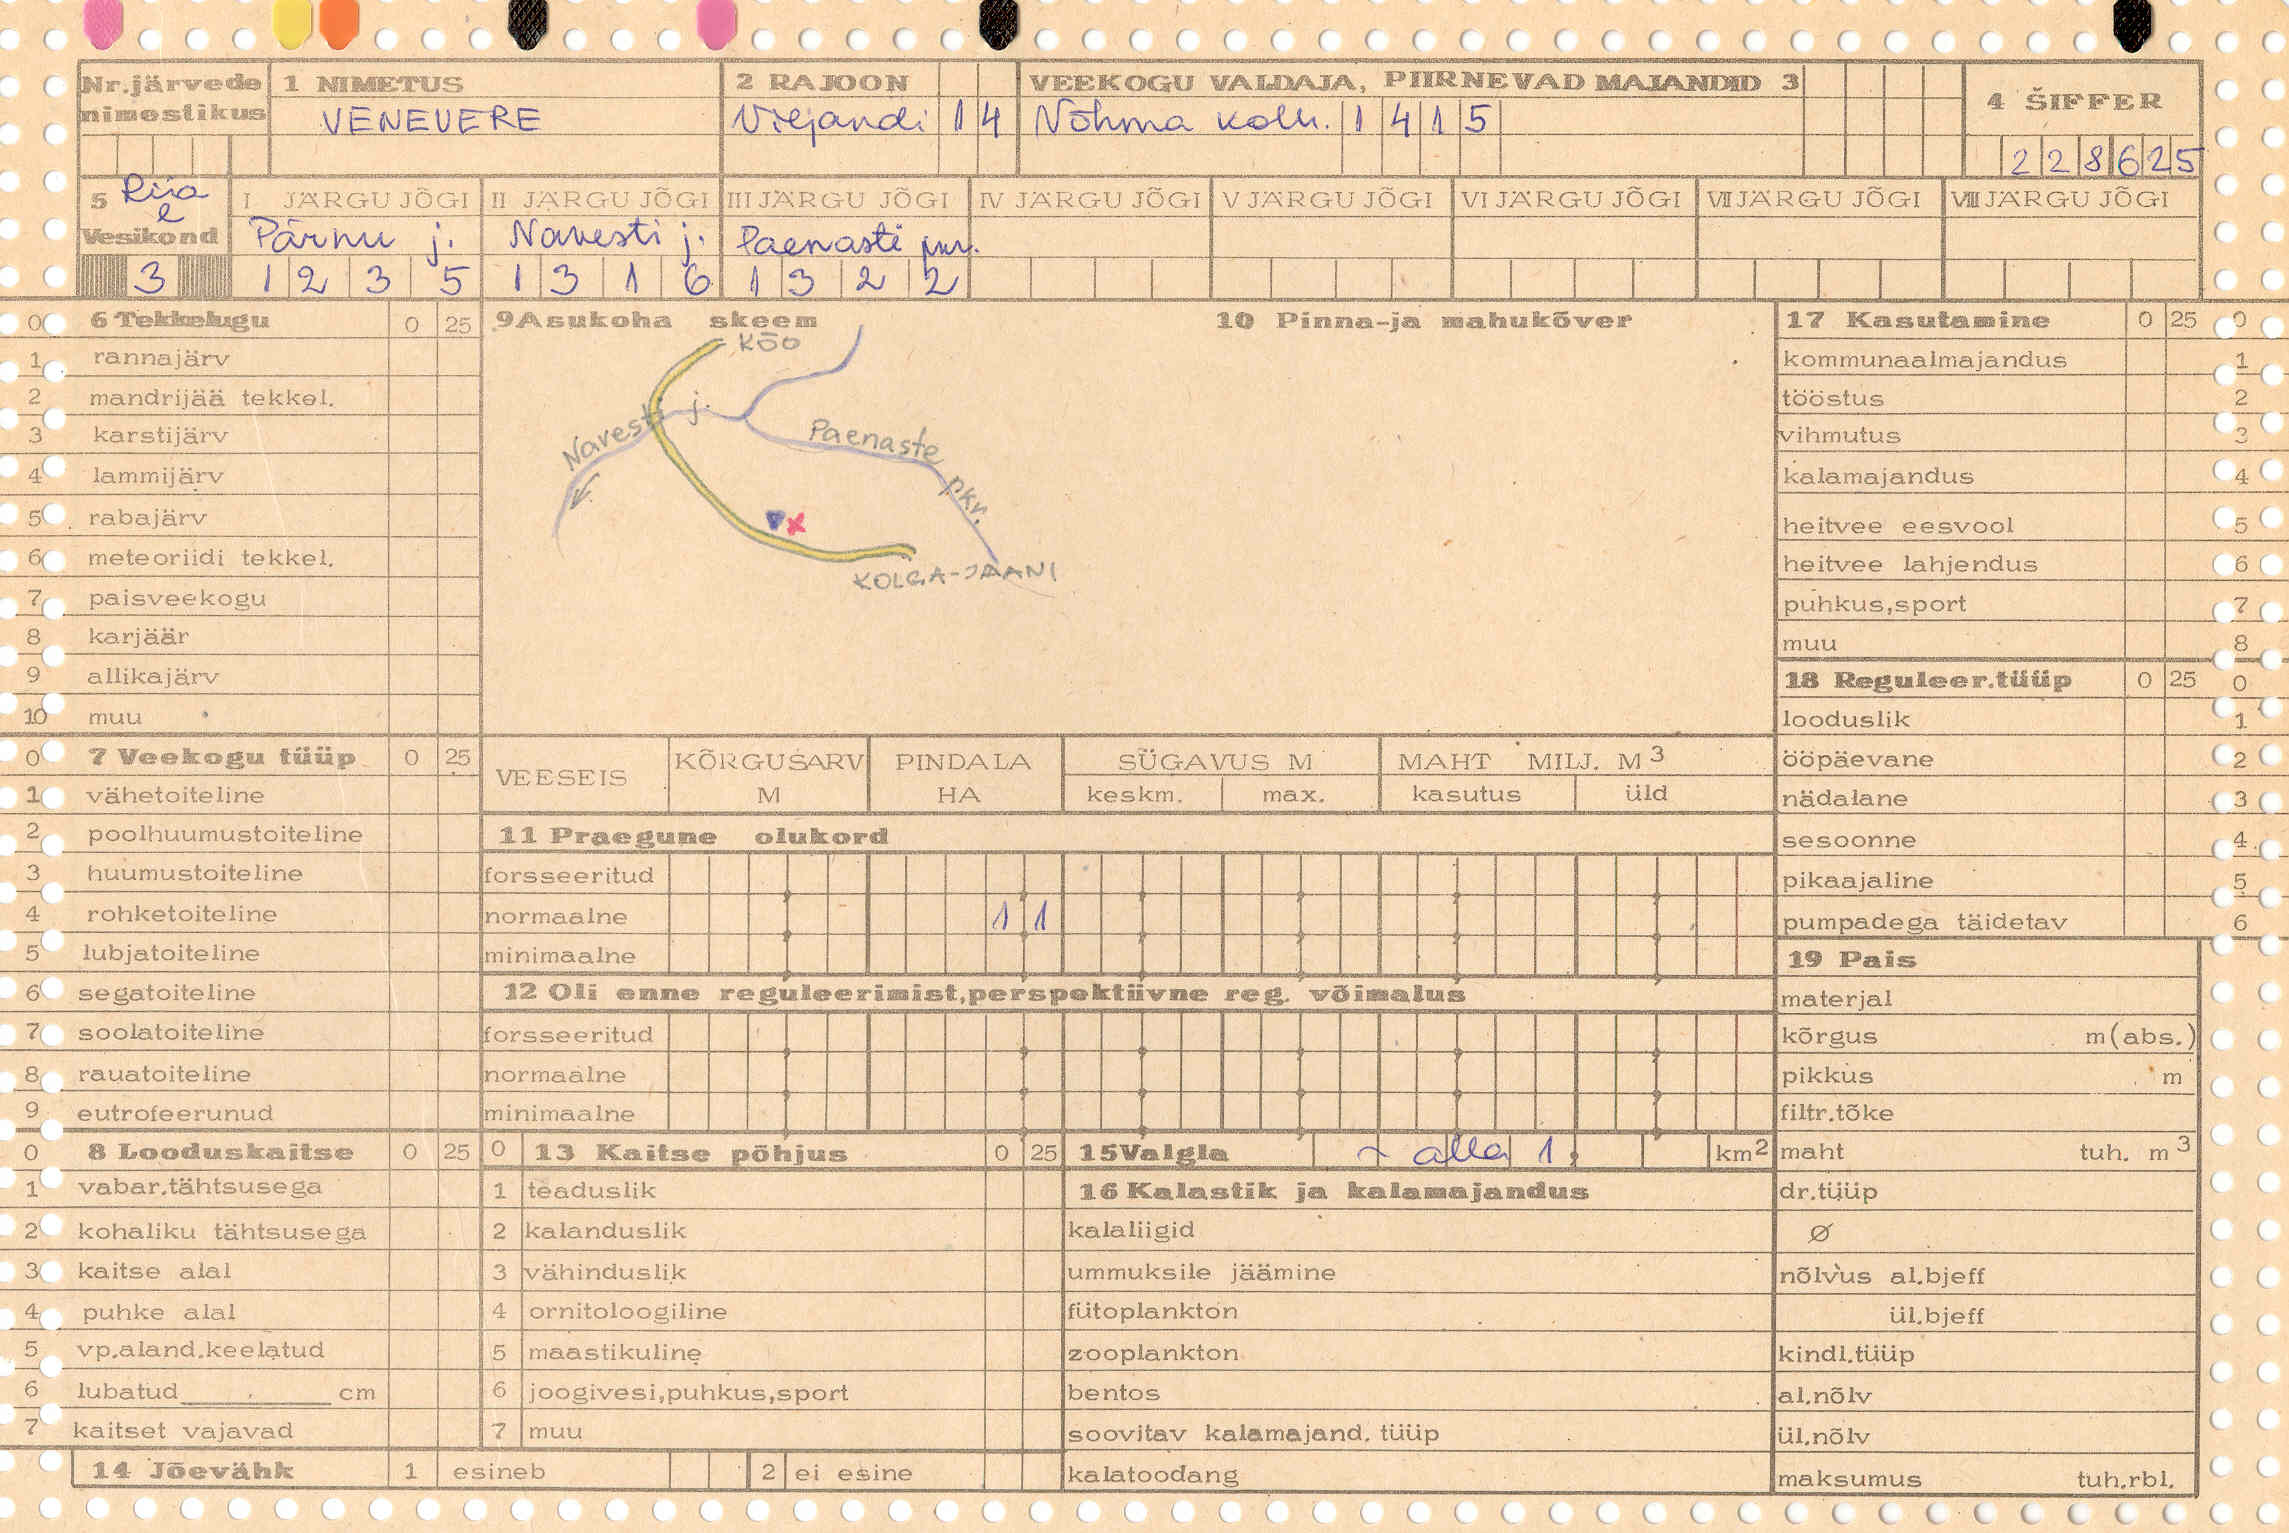 Nr.järvede nimestikus
1 NIMETUS
VENEVERE
2 RAJOON
Viljandi 14
VEEKOGU VALDAJA, PIIRNEVAD MAJANDID 3
Nõhma kolh. 1415
4 ŠIFFER
228625
5 Riia
Vesikond
3
I JÄRGU JÕGI
Pärnu j.
1235
II JÄRGU JÕGI
Navesti j.
1316
III JÄRGU JÕGI
Paenasti
1322
IV JÄRGU JÕGI
V JÄRGU JÕGI
VI JÄRGU JÕGI
VII JÄRGU JÕGI
VIII JÄRGU JÕGI
0 6 Tekkelugu 0 25
1 rannajärv
2 mandrijää tekkel.
3 karstijärv
4 lammijärv
5 rabajärv
6 meteoriidi tekkel.
7 paisveekogu
8 karjäär
9 allikajärv
10 muu
9 Asukoha skeem
KÕO
Navesti j.
Paenaste pkr.
KOLGA-JAANI
10 Pinna-ja mahukõver
17 Kasutamine 0 25 0
kommunaalmajandus 1
tööstus 2
vihmutus 3
kalamajandus 4
heitvee eesvool 5
heitvee lahjendus 6
puhkus,sport 7
muu 8
18 Reguleer.tüüp 0 25 0
looduslik 1
ööpäevane 2
nädalane 3
sesoonne 4
pikaajaline 5
pumpadega täidetav 6
0 7 Veekogu tüüp 0 25
1 vähetoiteline
2 poolhuumustoiteline
3 huumustoiteline
4 rohketoiteline
5 lubjatoiteline
6 segatoiteline
7 soolatoiteline
8 rauatoiteline
9 eutrofeerunud
VEESEIS
KÕRGUSARV M
PINDALA HA
SÜGAVUS M
keskm. max.
MAHT MILJ. M3
kasutus üld
11 Praegune olukord
forsseeritud
normaalne 1 1
minimaalne
12 Oli enne reguleerimist,perspektiivne reg. võimalus
forsseeritud
normaalne
minimaalne
19 Pais
materjal
kõrgus m(abs.)
pikkus m
filtr.tõke
maht tuh. m3
dr.tüüp
Ø
nõlvus al.bjeff
ül.bjeff
kindl.tüüp
al.nõlv
ül.nõlv
maksumus tuh.rbl.
0 8 Looduskaitse 0 25
1 vabar.tähtsusega
2 kohaliku tähtsusega
3 kaitse alal
4 puhke alal
5 vp.aland.keelatud
6 lubatud cm
7 kaitset vajavad
0 13 Kaitse põhjus 0 25
1 teaduslik
2 kalanduslik
3 vähinduslik
4 ornitoloogiline
5 maastikuline
6 joogivesi,puhkus,sport
7 muu
15 Valgla ~ alla 1, km2
16 Kalastik ja kalamajandus
kalaliigid
ummuksile jäämine
fütoplankton
zooplankton
bentos
soovitav kalamajand. tüüp
kalatoodang
14 Jõevähk 1 esineb 2 ei esine